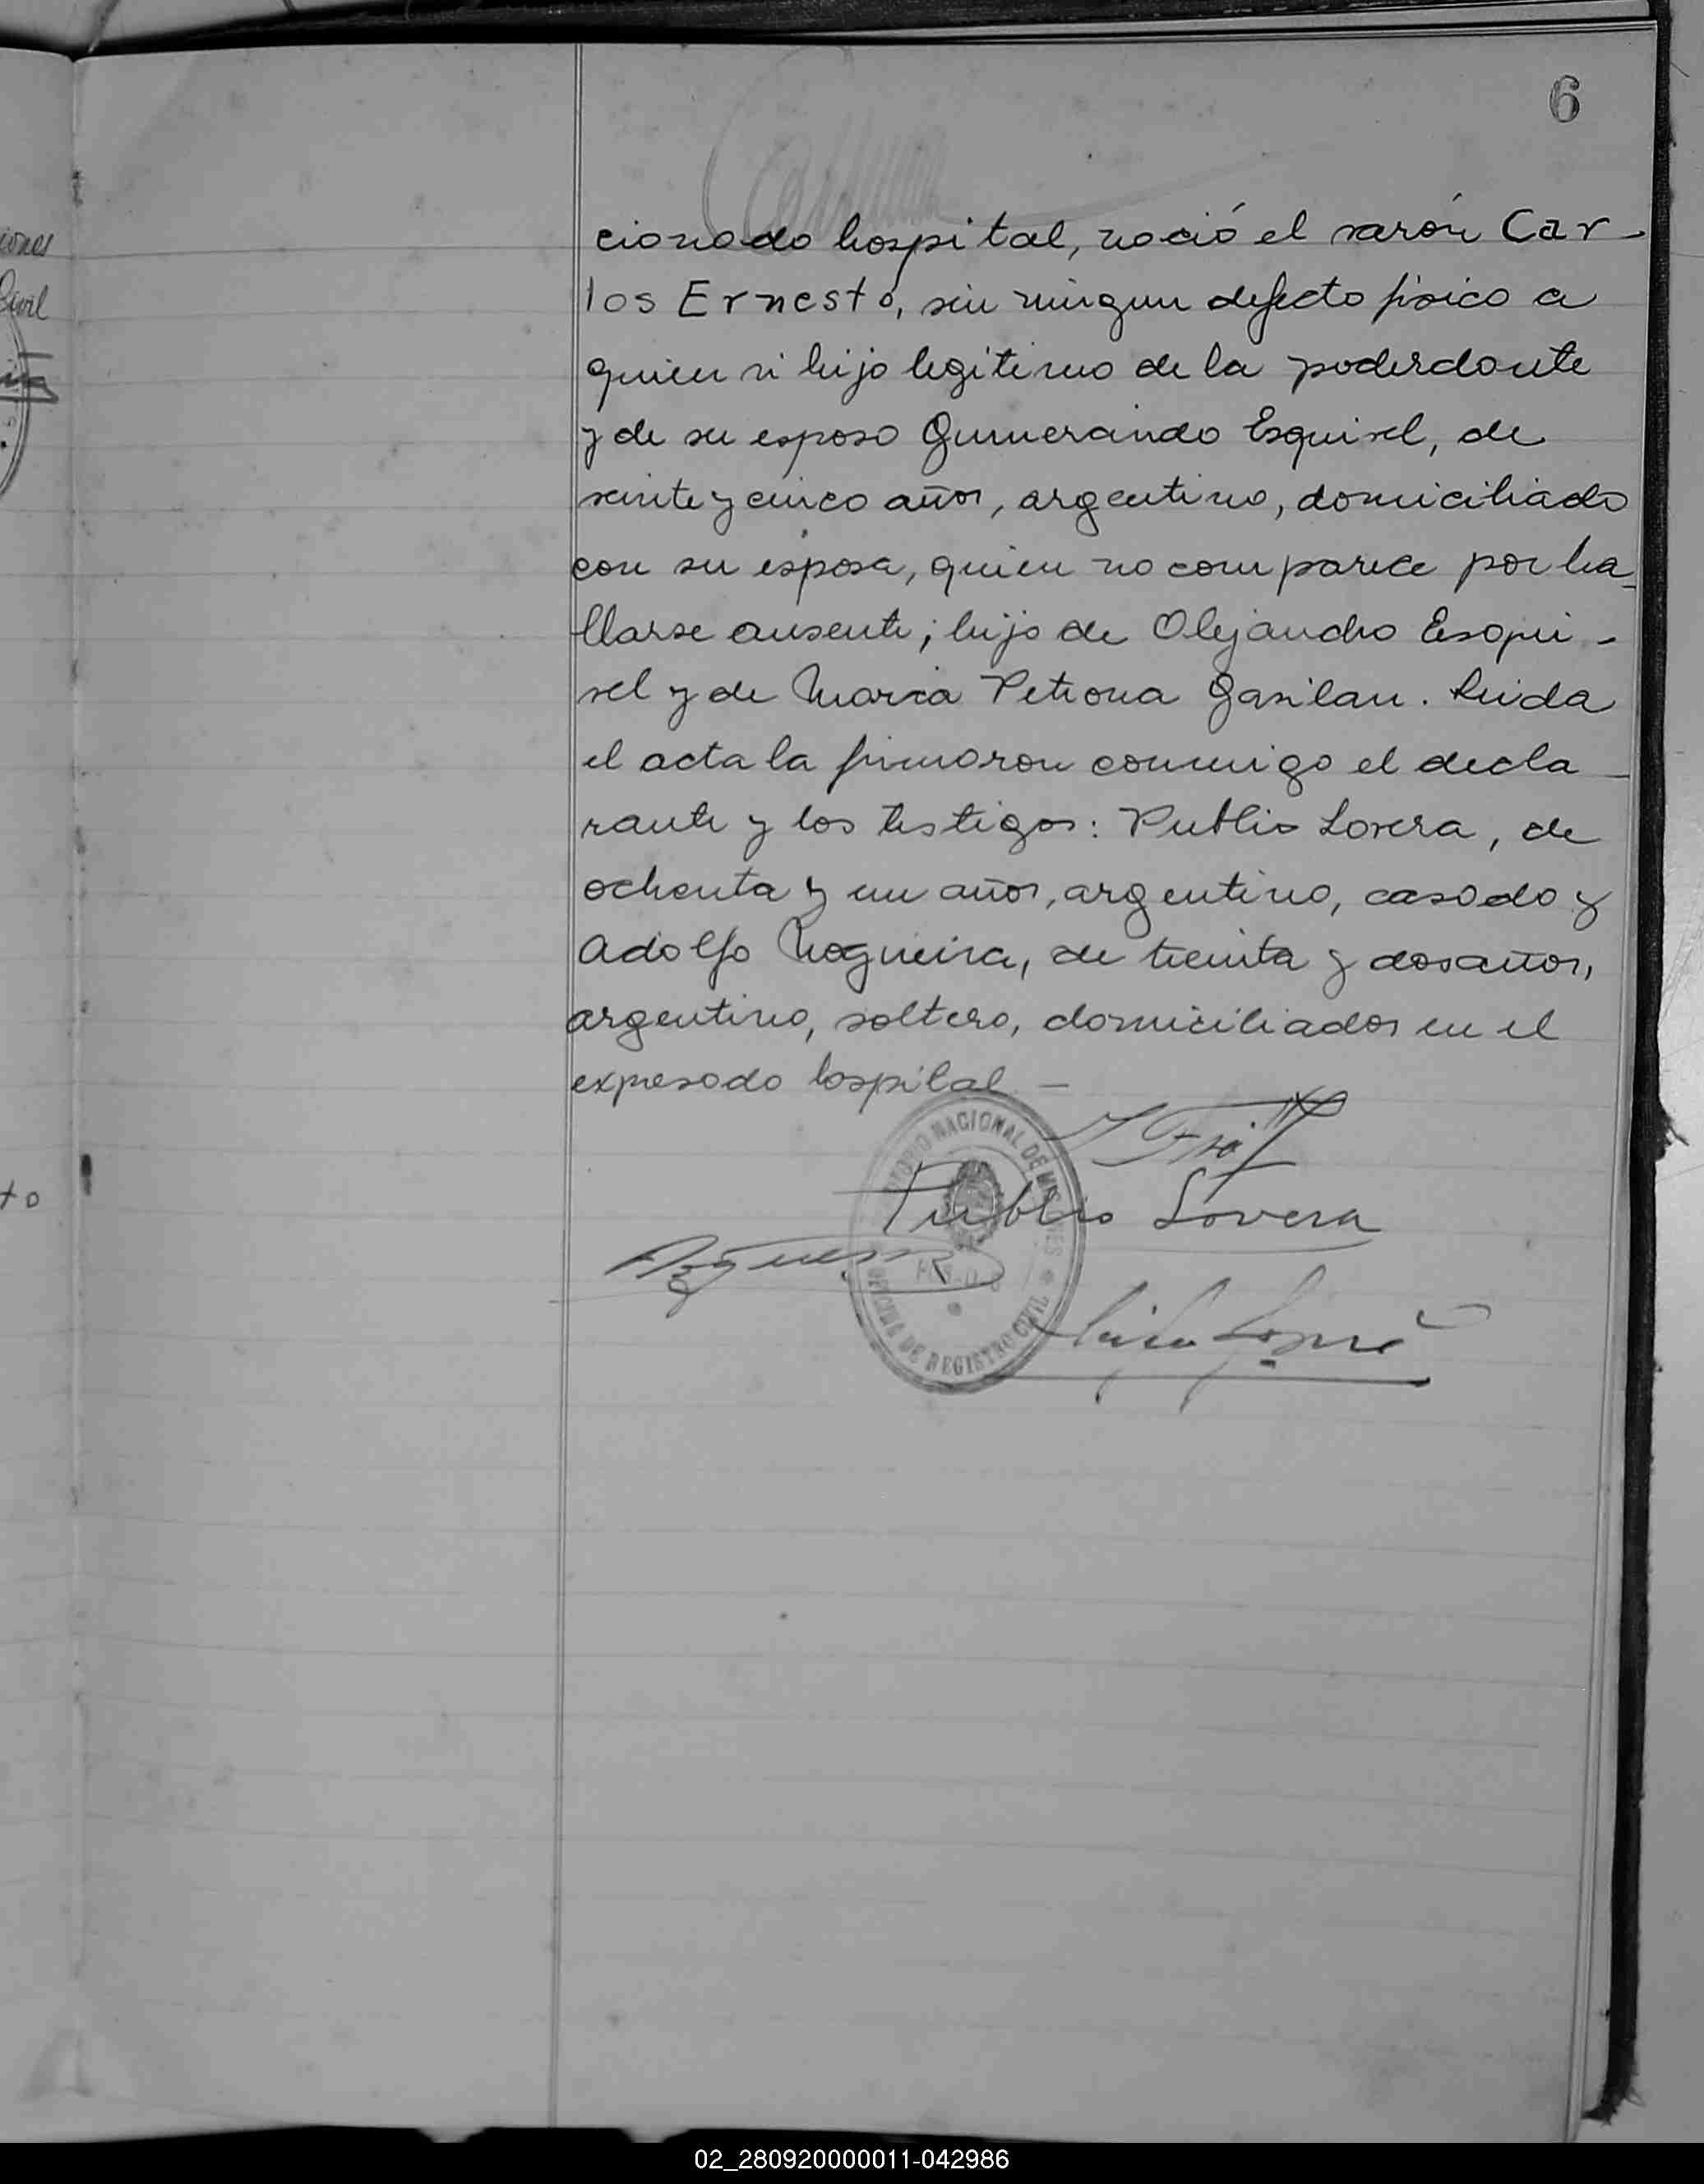 6
ciones
Civil
cionado hospital, nació el varón Car-
los Ernesto, sin ningun defecto fisico a
quien vi hijo legitimo de la poderdante
y de su esposo Gumersindo Esquivel, de
veinte y cinco años, argentino, domiciliado
con su esposa, quien no comparece por ha-
llarse ausente; hijo de Alejandro Esqui-
vel y de Maria Petrona Gavilan. Leida
el acta la firmaron conmigo el decla-
rante y los testigos: Publio Lovera, de
ochenta y un años, argentino, casado y
Adolfo Nogueira, de treinta y dos años,
argentino, soltero, domiciliados en el
expresado hospital —
to
TERRITORIO NACIONAL DE MISIONES
Publio Lovera
OFICINA DE REGISTRO CIVIL
02_280920000011-042986